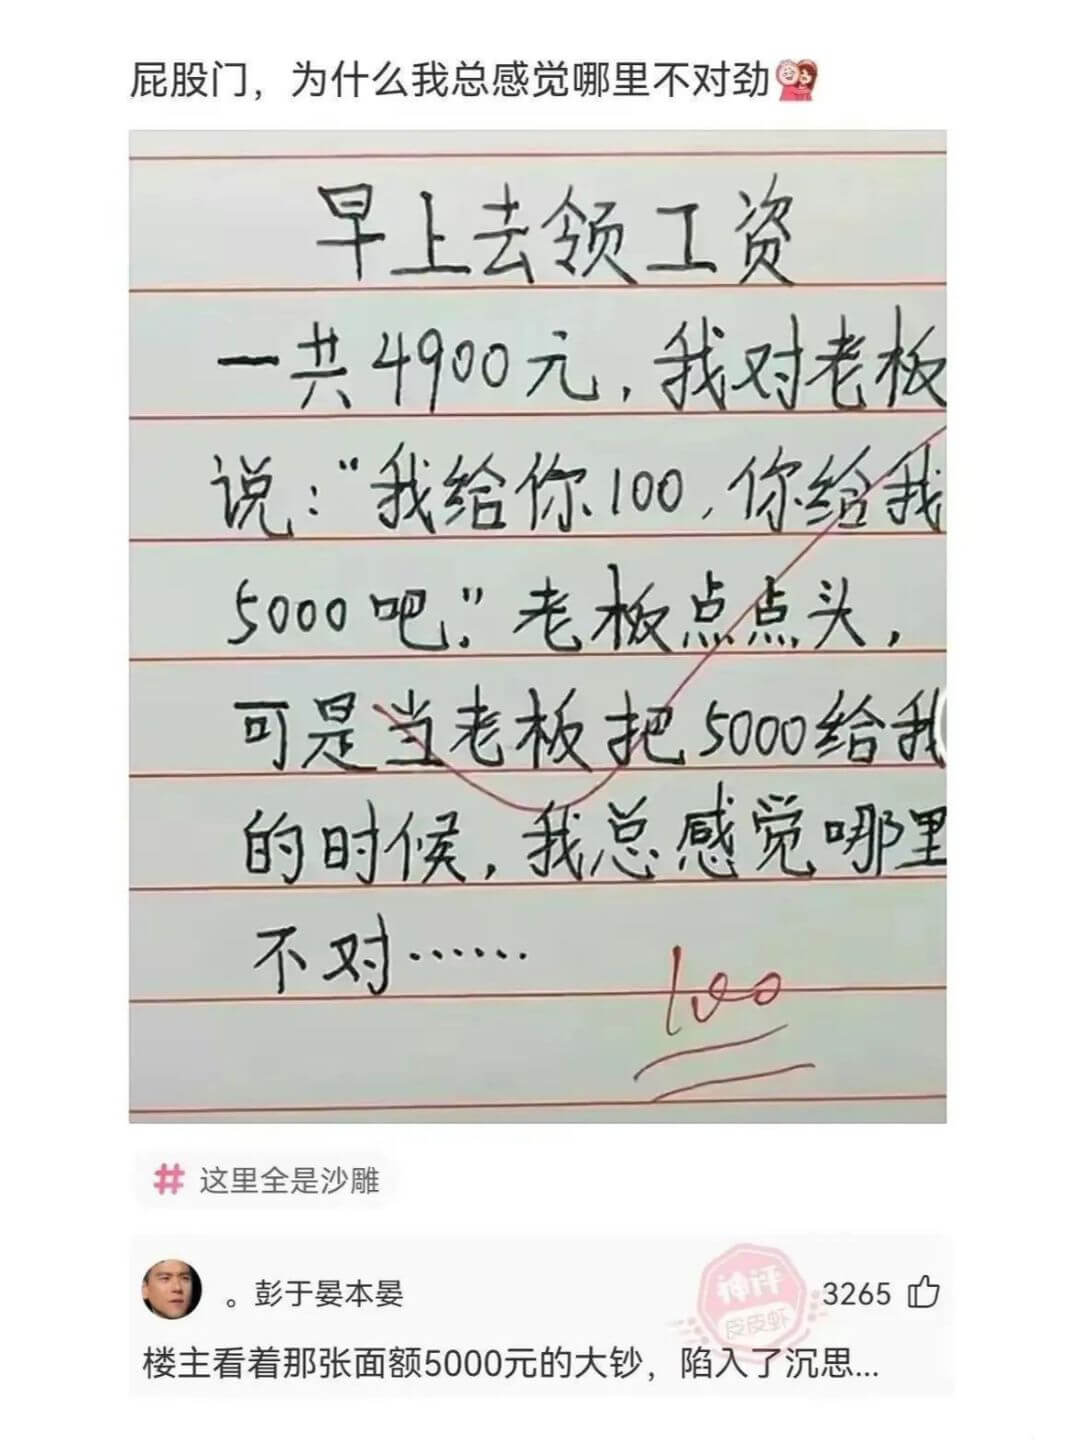 屁股门，为什么我总感觉哪里不对劲
早上去领工资
一共4900元，我对老板
说：“我给你100，你给我
5000吧。”老板点点头，
可是当老板把5000给我
的时候，我总感觉哪里
不对……
100
# 这里全是沙雕
。彭于晏本晏
神评
皮皮虾
3265
楼主看着那张面额5000元的大钞，陷入了沉思...